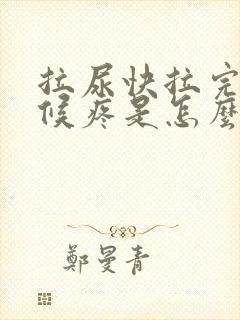 拉尿快拉完
候疼是怎麼
鄭曼青